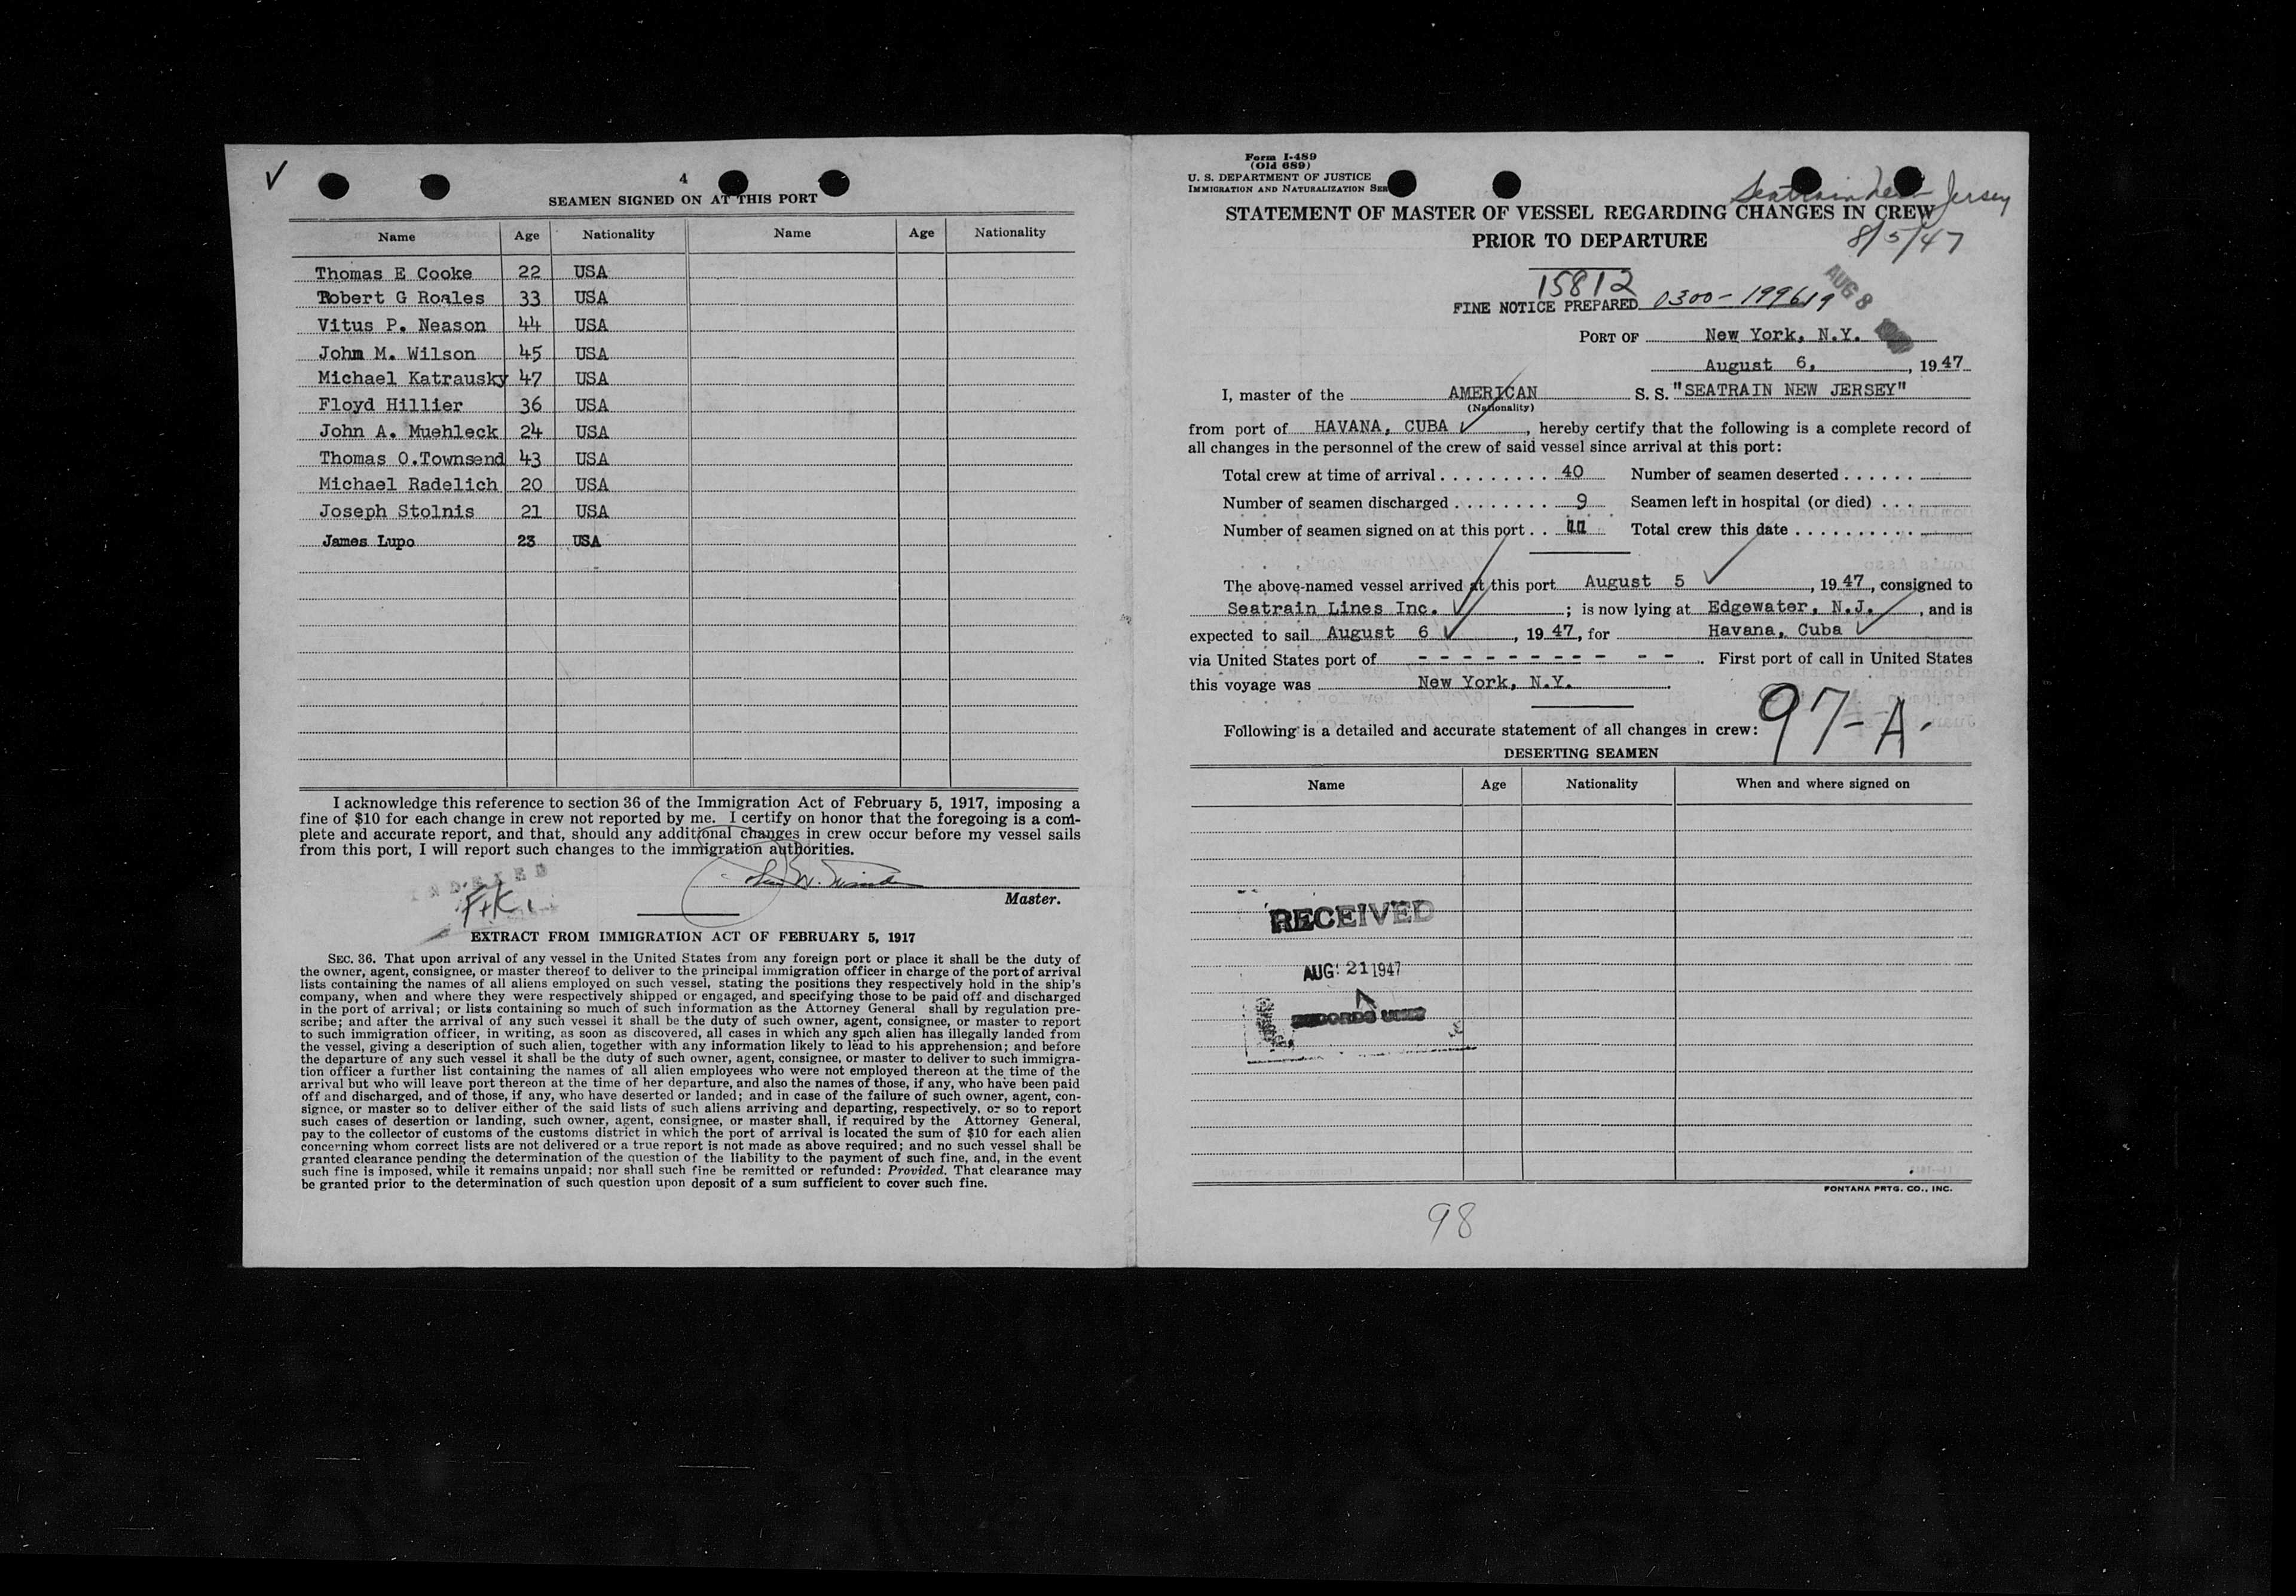 4
SEAMEN SIGNED ON AT THIS PORT
Name Age Nationality Name Age Nationality
Thomas E Cooke 22 USA
Robert G Roales 33 USA
Vitus P. Neason 44 USA
John M. Wilson 45 USA
Michael Katrausky 47 USA
Floyd Hillier 36 USA
John A. Muehleck 24 USA
Thomas O.Townsend 43 USA
Michael Radelich 20 USA
Joseph Stolnis 21 USA
James Lupo 23 USA
I acknowledge this reference to section 36 of the Immigration Act of February 5, 1917, imposing a
fine of $10 for each change in crew not reported by me. I certify on honor that the foregoing is a com-
plete and accurate report, and that, should any additional changes in crew occur before my vessel sails
from this port, I will report such changes to the immigration authorities.
INDEXED
Master.
EXTRACT FROM IMMIGRATION ACT OF FEBRUARY 5, 1917
SEC. 36. That upon arrival of any vessel in the United States from any foreign port or place it shall be the duty of
the owner, agent, consignee, or master thereof to deliver to the principal immigration officer in charge of the port of arrival
lists containing the names of all aliens employed on such vessel, stating the positions they respectively hold in the ship's
company, when and where they were respectively shipped or engaged, and specifying those to be paid off and discharged
in the port of arrival; or lists containing so much of such information as the Attorney General shall by regulation pre-
scribe; and after the arrival of any such vessel it shall be the duty of such owner, agent, consignee, or master to report
to such immigration officer, in writing, as soon as discovered, all cases in which any such alien has illegally landed from
the vessel, giving a description of such alien, together with any information likely to lead to his apprehension; and before
the departure of any such vessel it shall be the duty of such owner, agent, consignee, or master to deliver to such immigra-
tion officer a further list containing the names of all alien employees who were not employed thereon at the time of the
arrival but who will leave port thereon at the time of her departure, and also the names of those, if any, who have been paid
off and discharged, and of those, if any, who have deserted or landed; and in case of the failure of such owner, agent, con-
signee, or master so to deliver either of the said lists of such aliens arriving and departing, respectively, or so to report
such cases of desertion or landing, such owner, agent, consignee, or master shall, if required by the Attorney General,
pay to the collector of customs of the customs district in which the port of arrival is located the sum of $10 for each alien
concerning whom correct lists are not delivered or a true report is not made as above required; and no such vessel shall be
granted clearance pending the determination of the question of the liability to the payment of such fine, and, in the event
such fine is imposed, while it remains unpaid; nor shall such fine be remitted or refunded: Provided, That clearance may
be granted prior to the determination of such question upon deposit of a sum sufficient to cover such fine.
Form I-489
(Old 689)
U. S. DEPARTMENT OF JUSTICE
IMMIGRATION AND NATURALIZATION SER
Seatrain New Jersey
STATEMENT OF MASTER OF VESSEL REGARDING CHANGES IN CREW
PRIOR TO DEPARTURE
8/5/47
15812
FINE NOTICE PREPARED 0300-199619
AUG 8
PORT OF New York, N.Y.
August 6, , 1947
I, master of the AMERICAN S. S. "SEATRAIN NEW JERSEY"
(Nationality)
from port of HAVANA, CUBA , hereby certify that the following is a complete record of
all changes in the personnel of the crew of said vessel since arrival at this port:
Total crew at time of arrival . . . . . . . . . 40 Number of seamen deserted . . . . . .
Number of seamen discharged . . . . . . . . 9 Seamen left in hospital (or died) . . .
Number of seamen signed on at this port . . 11 Total crew this date . . . . . . . . . .
The above-named vessel arrived at this port August 5 , 1947, consigned to
Seatrain Lines Inc. ; is now lying at Edgewater, N.J. , and is
expected to sail August 6 , 1947, for Havana, Cuba
via United States port of - - - - - - - - - - - . First port of call in United States
this voyage was New York, N.Y. .
97-A.
Following is a detailed and accurate statement of all changes in crew:
DESERTING SEAMEN
Name Age Nationality When and where signed on
RECEIVED
AUG 21 1947
RECORDS UNIT
FONTANA PRTG. CO., INC.
98